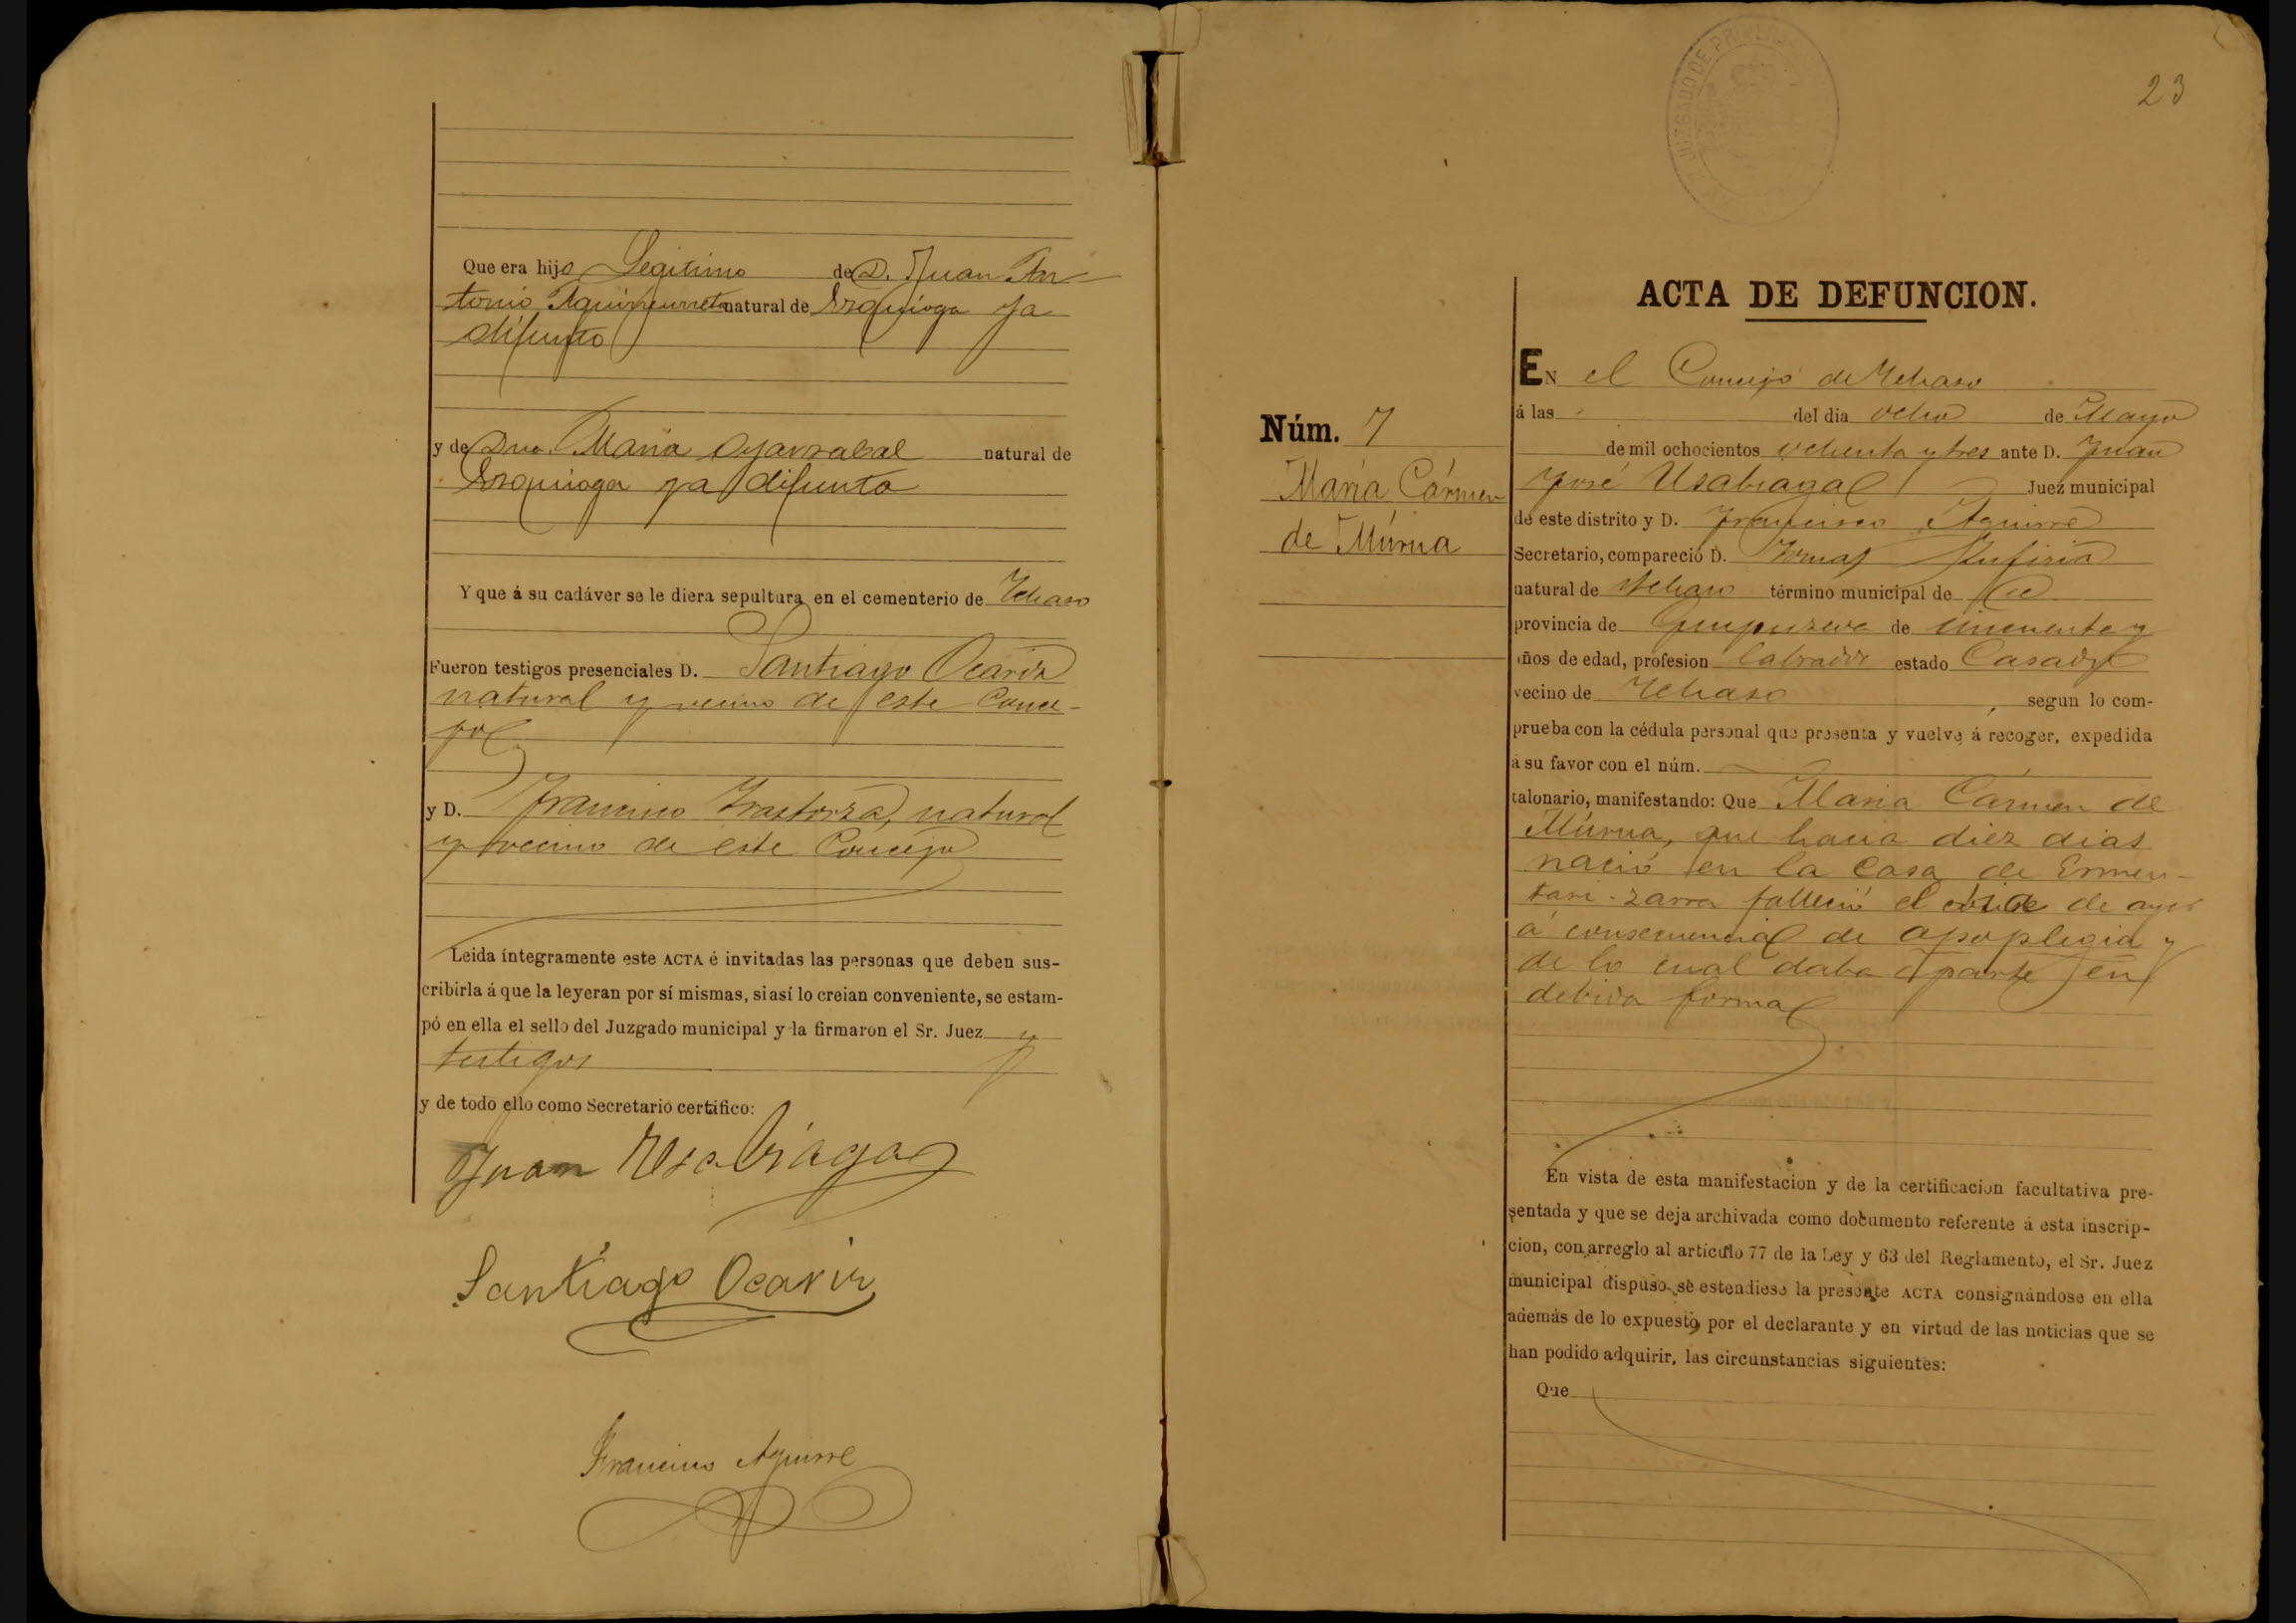 Que era hijo Legitimo de D. Juan An-
tonio Aguirreurreta natural de Ezquioga ya
difunto
y de Dña. Maria Oyarzabal natural de
Ezquioga ya difunta
Y que á su cadáver se le diera sepultura en el cementerio de Ichaso
Fueron testigos presenciales D. Santiago Ocariz
natural y vecino de este Conce-
jo
y D. Francisco Irastorza, natural
y vecino de este Concejo
Leida íntegramente este ACTA é invitadas las personas que deben sus-
cribirla á que la leyeran por sí mismas, si así lo creian conveniente, se estam-
pó en ella el sello del Juzgado municipal y la firmaron el Sr. Juez y
testigos
y de todo ello como Secretario certifico:
Juan Usabiaga
Santiago Ocariz
Francisco Aguirre
JUZGADO DE PRIMERA
23
ACTA DE DEFUNCION.
Núm. 7
María Cármen
de Múrua
EN el Concejo de Ichaso
á las del dia ocho de Mayo
de mil ochocientos ochenta y tres ante D. Juan
José Usabiaga Juez municipal
de este distrito y D. Francisco Aguirre
Secretario, compareció D. Tomas
natural de Ichaso término municipal de id
provincia de Guipuzcoa de cincuenta y
años de edad, profesion labrador estado Casado
vecino de Ichaso, segun lo com-
prueba con la cédula personal que presenta y vuelve á recoger, expedida
a su favor con el núm.
talonario, manifestando: Que Maria Cármen de
Múrua, que hacia diez dias
nació en la Casa de Ermen-
tari-zarra falleció el de ayer
á consecuencia de apoplegia y
de lo cual daba parte en
debida forma
En vista de esta manifestacion y de la certificacion facultativa pre-
sentada y que se deja archivada como documento referente á esta inscrip-
cion, con arreglo al artículo 77 de la Ley y 63 del Reglamento, el Sr. Juez
municipal dispuso se estendiese la presente ACTA consignándose en ella
además de lo expuesto por el declarante y en virtud de las noticias que se
han podido adquirir, las circunstancias siguientes:
Que